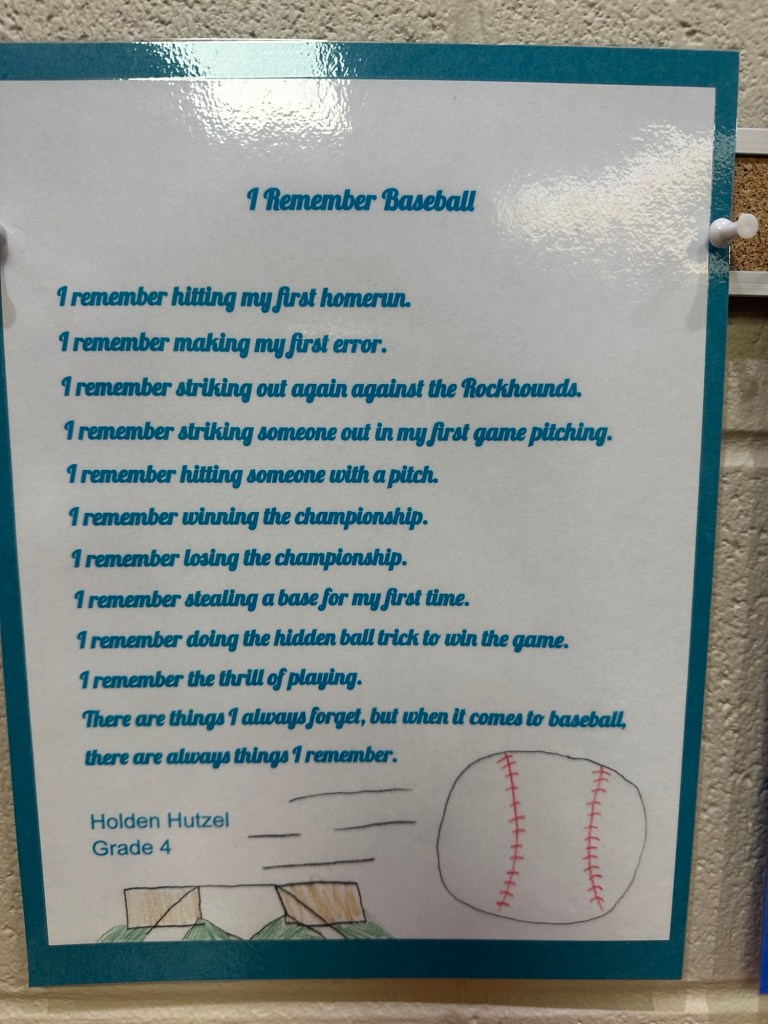 I Remember Baseball
I remember hitting my first homerun.
I remember making my first error.
I remember striking out again against the Rockhounds.
I remember striking someone out in my first game pitching.
I remember hitting someone with a pitch.
I remember winning the championship.
I remember losing the championship.
I remember stealing a base for my first time.
I remember doing the hidden ball trick to win the game.
I remember the thrill of playing.
There are things I always forget, but when it comes to baseball,
there are always things I remember.
Holden Hutzel
Grade 4